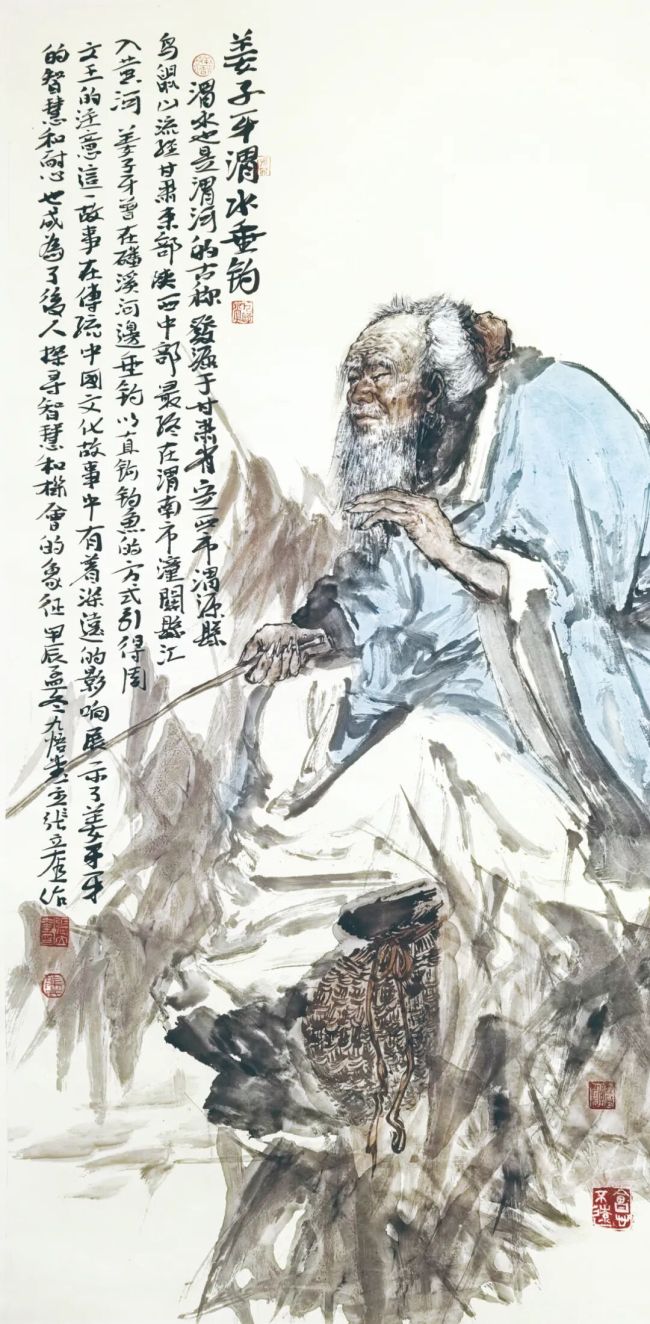 姜子牙渭水垂钓
渭水也是渭河的古称 發源于甘肃省定西市渭源縣
鸟鼠山流经甘肃東部陕西中部最终在渭南市潼關縣汇
入黄河 姜子牙曾在磻溪河邊垂钓以直钩钓魚的方式引得周
文王的注意這一故事在傳統中國文化故事中有着深遠的影响展示了姜子牙
的智慧和耐心也成為了後人探寻智慧和機會的象征 甲辰孟冬九悟堂主張立